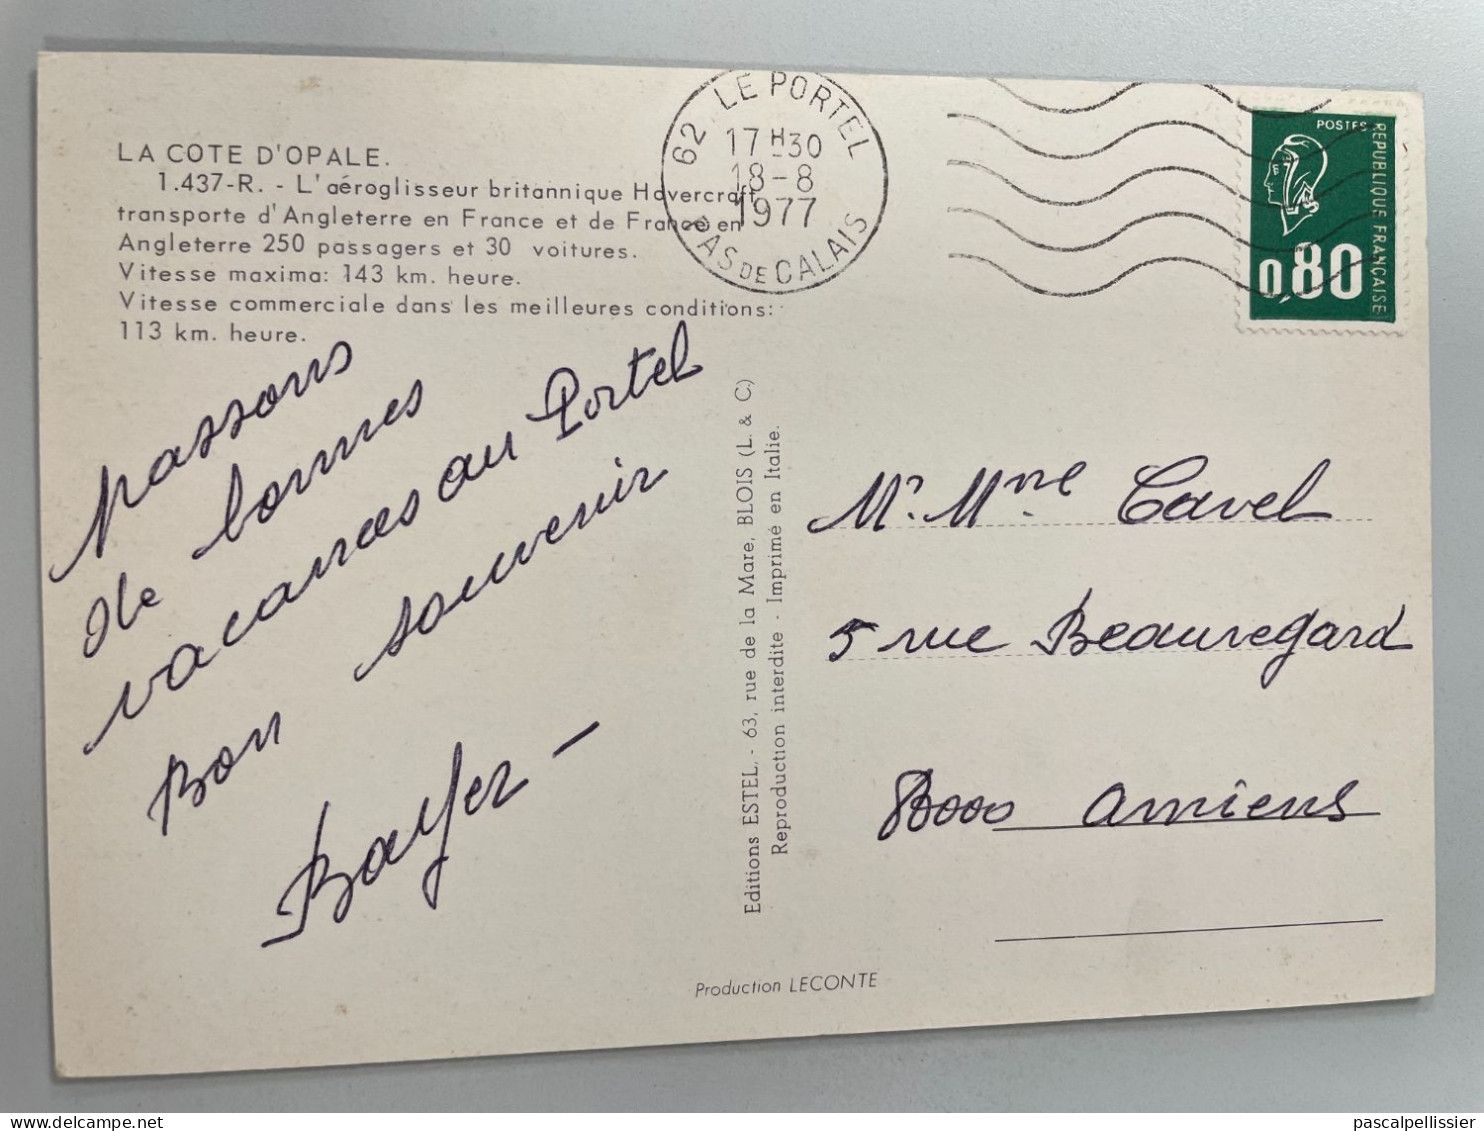 LA COTE D'OPALE.
1.437-R. - L'aéroglisseur britannique Hovercraft
transporte d'Angleterre en France et de France en
Angleterre 250 passagers et 30 voitures.
Vitesse maxima: 143 km. heure.
Vitesse commerciale dans les meilleures conditions:
113 km. heure.
passons
de bonnes
vacances au Portel
Bon souvenir
Bayer -
62 LE PORTEL
17 H 30
18-8
1977
PAS DE CALAIS
POSTES
REPUBLIQUE FRANÇAISE
0,80
Editions ESTEL, - 63, rue de la Mare, BLOIS (L. & C)
Reproduction interdite - Imprimé en Italie.
Mr. Mme Cavel
5 rue Beauregard
8000 Amiens
Production LECONTE
pascalpellissier